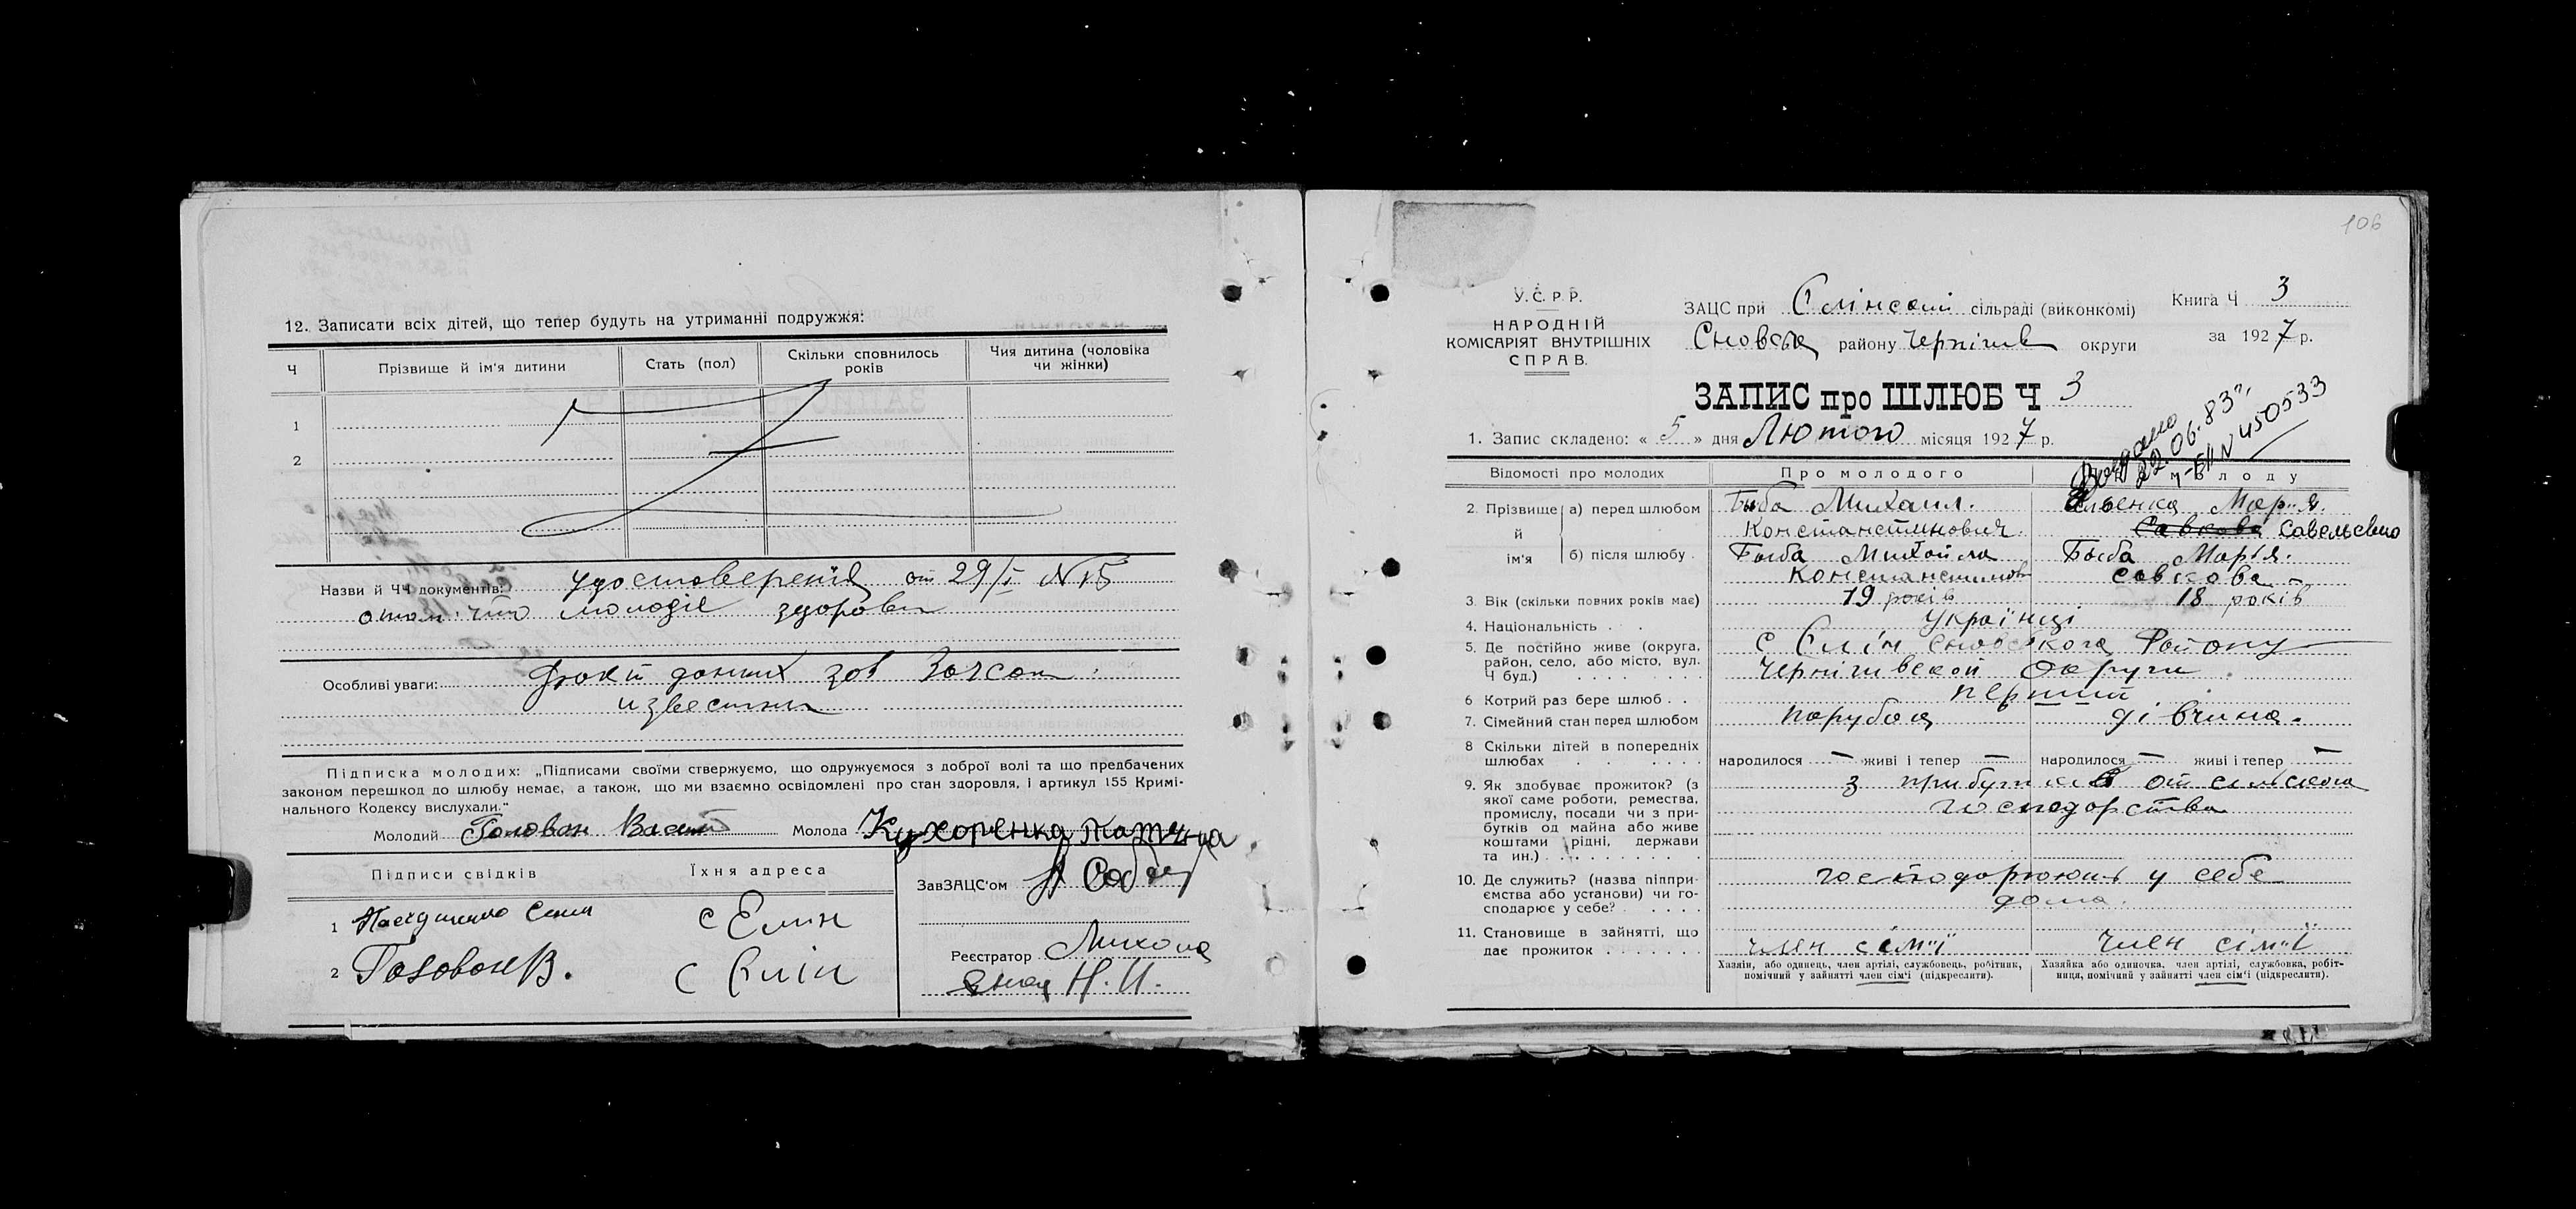 12. Записати всіх дітей, що тепер будуть на утриманні подружжя:
Ч
Прізвище й ім'я дитини
Стать (пол)
Скільки сповнилось років
Чия дитина (чоловіка чи жінки)
1
2
Назви й ЧЧ документів: удостоверения от 29/I №15
о том что молодіє здорови
Особливі уваги:
известны
Підписка молодих: „Підписами своїми ствержуємо, що одружуємося з доброї волі та що предбачених
законом перешкод до шлюбу немає, а також, що ми взаємно освідомлені про стан здоровля, і артикул 155 Кримі-
нального Кодексу вислухали."
Молодий Голован Васил Молода Кухоренка
Підписи свідків
Їхня адреса
1 с Елин
2 Головон В. с Єлін
ЗавЗАЦС'ом
Реєстратор
Н. И.
106
У.С.Р.Р.
НАРОДНІЙ
КОМІСАРІЯТ ВНУТРІШНІХ
СПРАВ.
ЗАЦС при Єлінсой сільраді (виконкомі)
Сновськ району Чернігів округи
Книга Ч 3
за 1927 р.
ЗАПИС про ШЛЮБ Ч 3
Выдано
22.06.83г.
N 450533
1. Запис складено: « 5 » дня Лютого місяця 1927 р.
Відомості про молодих
Про молодого
2. Прізвище й ім'я
а) перед шлюбом
Быба Михаил.
Константинович.
Марія.
Савкова Савельевно
б) після шлюбу.
Быба Михайло
Константинов
Быба Марья.
Савкова
3. Вік (скільки повних років має) 19 років 18 років
4. Національність . . Українці
5. Де постійно живе (округа, район, село, або місто, вул. Ч буд.)
с Єлін Сновського Району
Чернігивской Округи
6 Котрий раз бере шлюб . . перший
7. Сімейний стан перед шлюбом парубок дівчина.
8 Скільки дітей в попередніх шлюбах
народилося — живі і тепер —
народилося — живі і тепер —
9. Як здобуває прожиток? (з якої саме роботи, ремества, промислу, посади чи з прибутків од майна або живе коштами рідні, держави та ин.)
з прибутков от сільского
господарства
10. Де служить? (назва підприємства або установи) чи господарює у себе?
господорюють у себе
дома.
11. Становище в зайнятті, що дає прожиток
член сім'ї
член сім'ї
Хазяїн, або одинець, член артілі, службовець, робітник, помічний у зайнятті член сім'ї (підкреслити).
Хазяйка або одиночка, член артілі, службовка, робітниця, помічний у зайнятті член сім'ї (підкреслити).